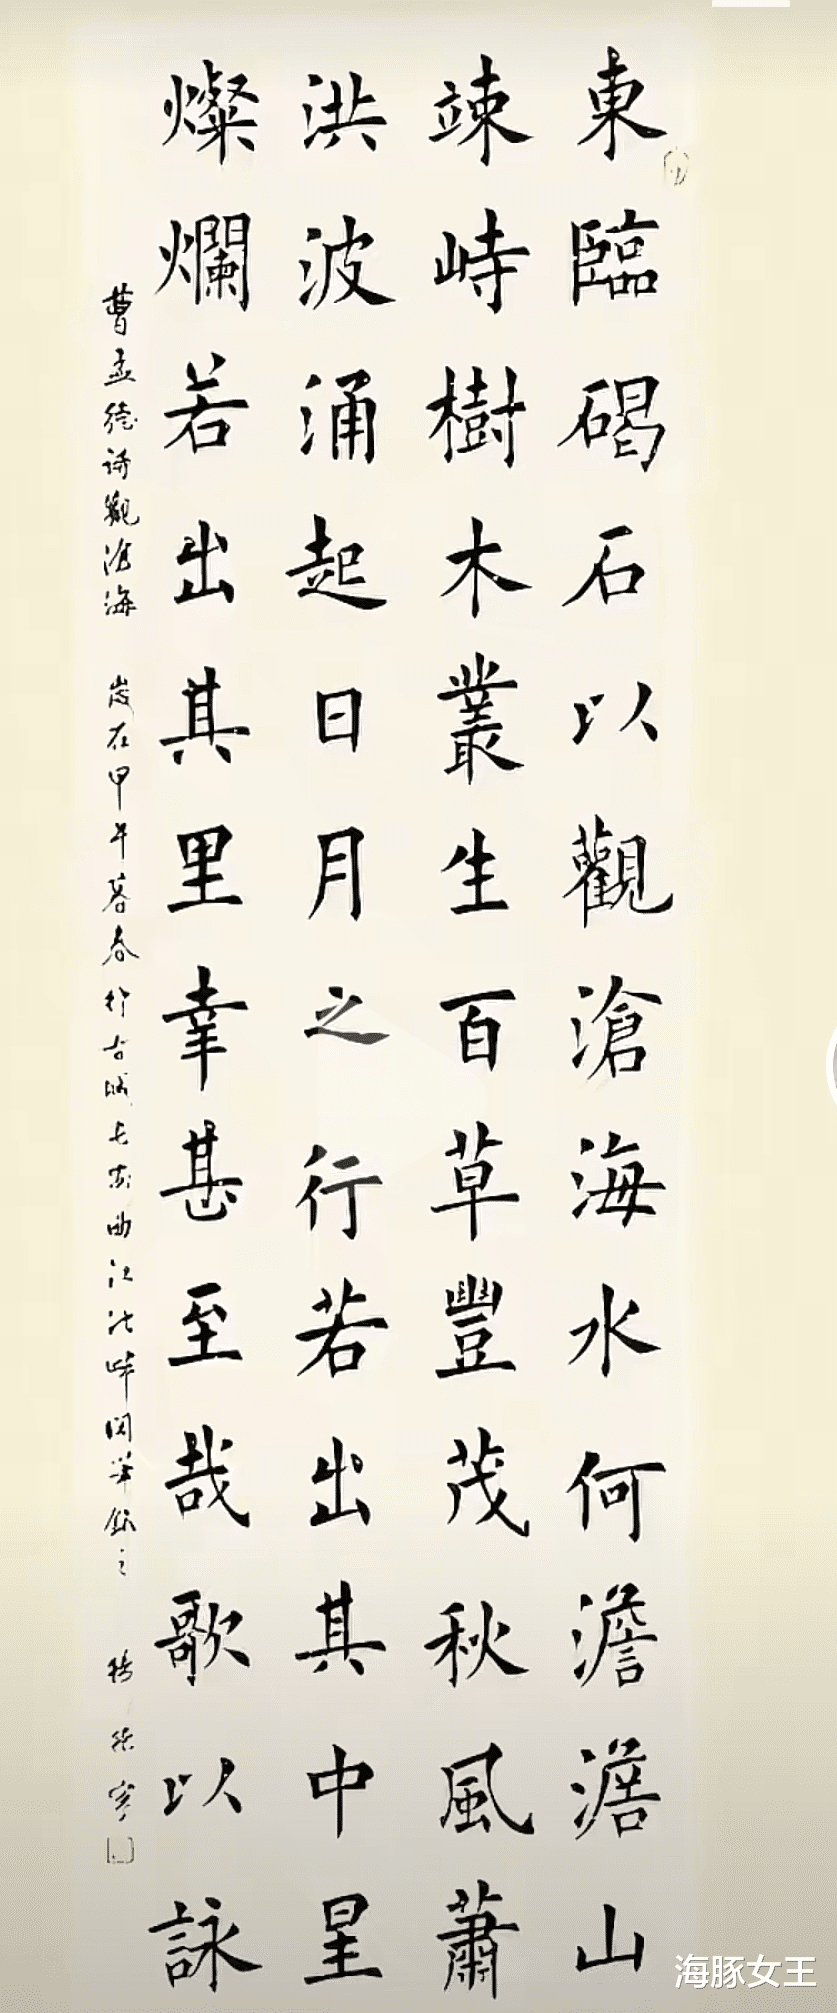 東臨碣石以觀滄海水何澹澹山
竦峙樹木叢生百草豐茂秋風蕭
洪波涌起日月之行若出其中星
燦爛若出其里幸甚至哉歌以詠
曹孟德詩觀滄海 歲在甲午暮春於古城長安曲江池畔
海豚女王